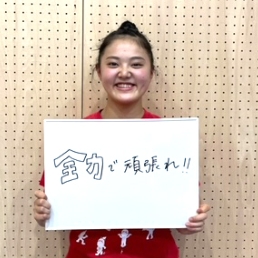 全力で頑張れ!!